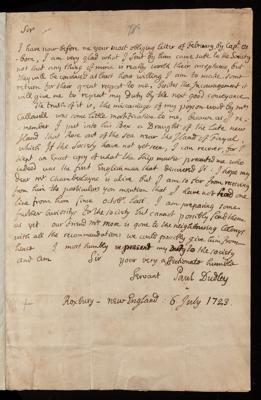 Sir
I have now before me your most obliging letter of February by Capt
bore, I am very glad what I sent by him came safe to the Society
not that any thing of mine is really worth their reception but
they will be convinced at least how willing I am to make some
return for their great respect to me, besides the Encouragement it
will give me to repeat my Duty by the next good conveyance
The truth of it is, the miscarriage of my poyson wood by Mr
Callowell was some little mortification to me, because as I re-
member I put into his Box a Draught of the Late new
Island that have out of the sea near the Island of Fayal
which If the Society have not yet seen, I can recover, for I
kept an Exact copy of what the ship master presented me who
indeed was the first Englishman that discovered it. I hope my
Dear Mr Chamberlayne is alive. But I am so far from receiving
from him the particulars you mention that I have not had one
line from him since October last. I am preparing some
further curiosity for the Society but cannot possibly send them
as yet. our friend Mr more is gone to the neighbouring Colonys
with all the recommendations we could possibly give him from
hence. I most humbly represent my duty to the Society
and am Sir your very affectionate humble
Servant Paul Dudley
Roxbury - new England 6 July 1723.